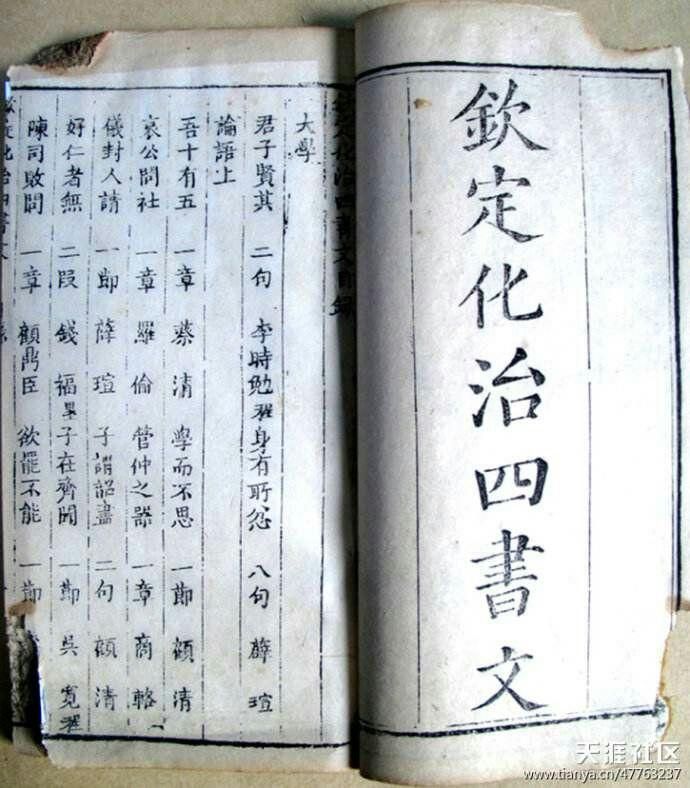 欽定化治四書文
欽定化治四書文目錄
大學
君子賢其 二句 李時勉程 身有所忿 八句 薛瑄
論語上
吾十有五 一章 蔡清 學而不思 一節 顧清
哀公問社 一章 羅倫 管仲之器 一章 商輅
儀封人請 一節 薛瑄 子謂韶盡 二句 顧清
好仁者無 二段 錢福墨 子在齊聞 一節 吳寬程
陳司敗問 一章 顧鼎臣 欲罷不能 一節
化治四書文
天涯社区
www.tianya.cn/47763237